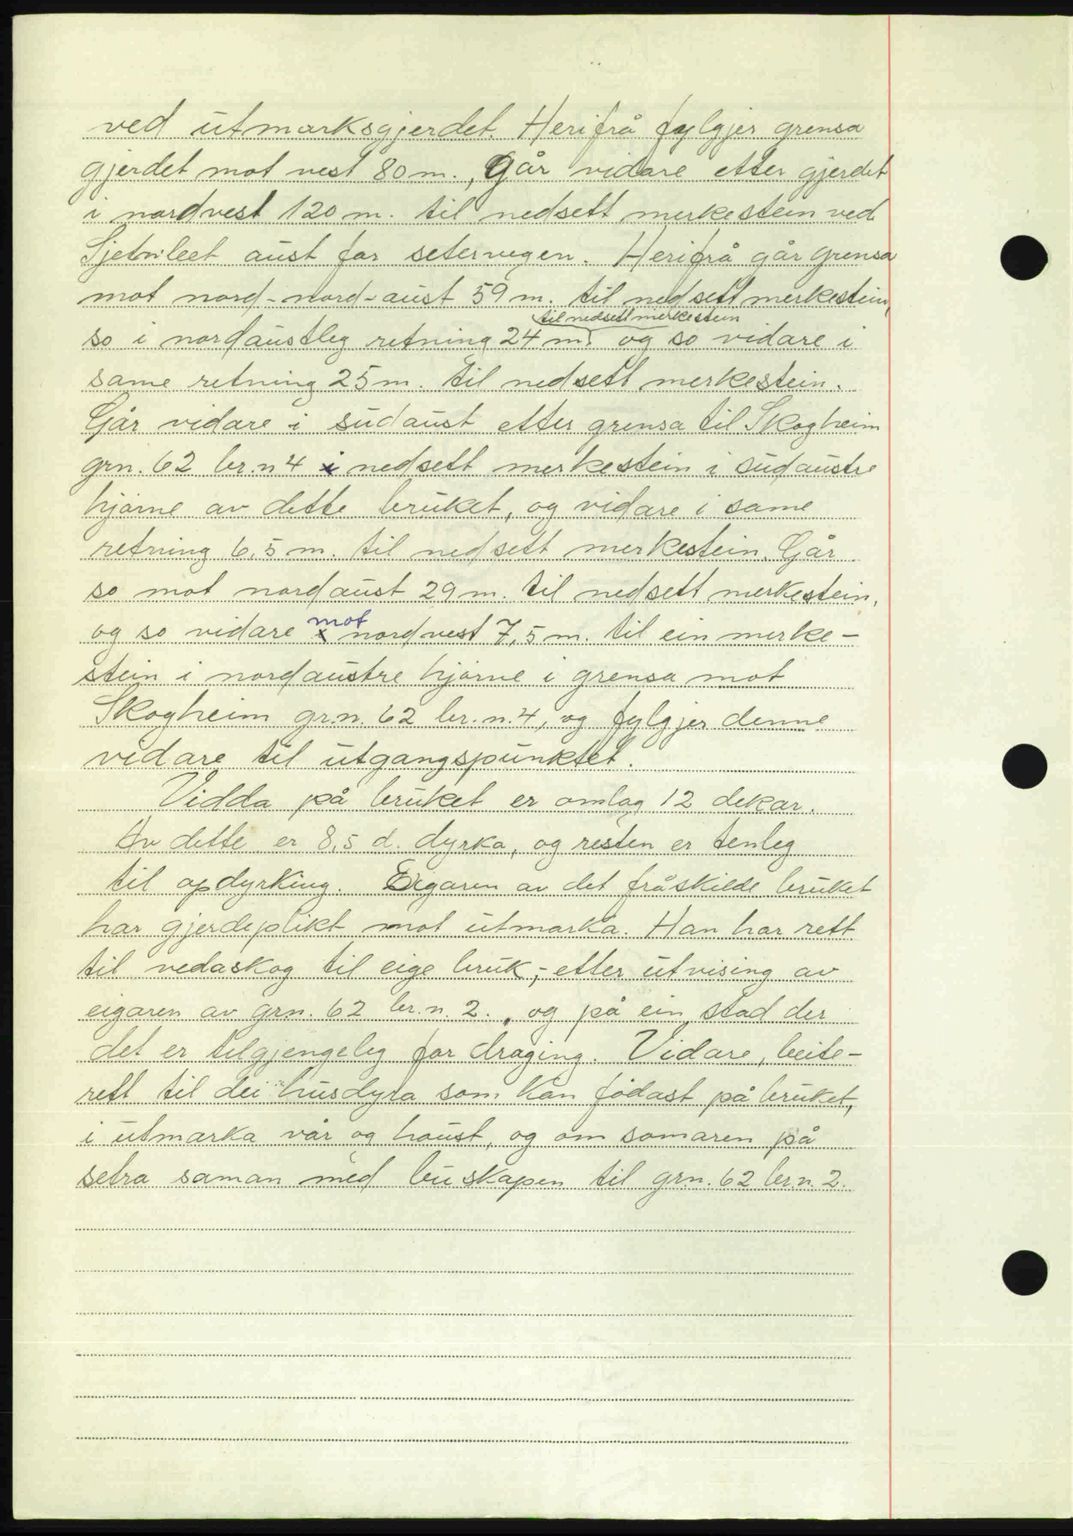 ved utmarksgjerdet. Herifrå fylgjer grensa
gjerdet mot vest 80 m., går vidare etter gjerdet
i nordvest 120 m. til nedsett merkestein ved
aust for setervegen. Herifrå går grensa
mot nord-nord-aust 59 m. til nedsett merkestein,
til nedsett merkestein
so i nordaustleg retning 24 m. og so vidare i
same retning 25 m. til nedsett merkestein.
Går vidare i sudaust etter grensa til Skogheim
grn. 62 br.n 4 i nedsett merkestein i sudaustre
hjørne av dette bruket, og vidare i same
retning 6,5 m. til nedsett merkestein. Går
so mot nordaust 29 m. til nedsett merkestein,
og so vidare mot nordvest 7,5 m. til ein merke-
stein i nordaustre hjørne i grensa mot
Skogheim gr.n. 62 br.n.4, og fylgjer denne
vidare til utgangspunktet.
Vidda på bruket er omlag 12 dekar.
Av dette er 8,5 d. dyrka, og resten er tenleg
til opdyrking. Eigaren av det fråskilde bruket
har gjerdeplikt mot utmarka. Han har rett
til vedaskog til eige bruk,- etter utvising av
eigaren av grn. 62 br.n. 2., og på ein stad der
det er tilgjengeleg for draging. Vidare, beite-
rett til dei husdyra som kan fødast på bruket,
i utmarka vår og haust, og om somaren på
setra saman med buskapen til grn. 62 br.n. 2.